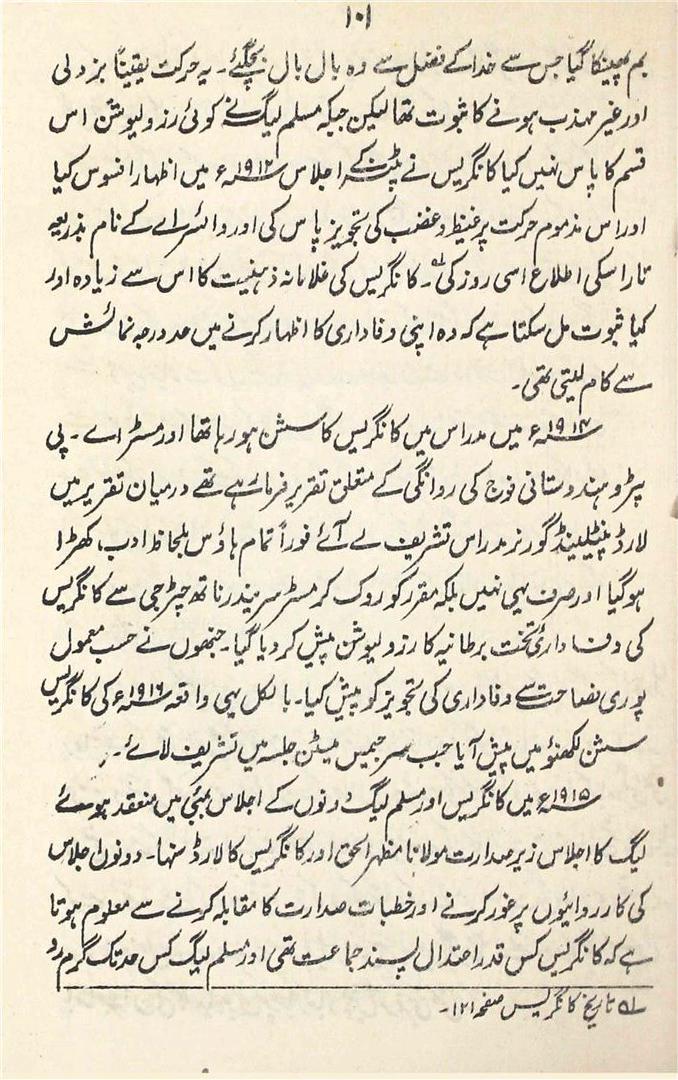 ۱۰۱
بم پھینکا گیا جس سے خدا کے فضل سے وہ بال بال بچ گئے۔ یہ حرکت یقیناً بزدلی
اور غیر مہذب ہونے کا ثبوت تھا لیکن جبکہ مسلم لیگ نے کوئی رزولیوشن اس
قسم کا پاس نہیں کیا کانگریس نے پٹنہ کے اجلاس ۱۹۱۲ء میں اظہار افسوس کیا
اور اس مذموم حرکت پر غیظ و غضب کی تجویز پاس کی اور وائسرائے کے نام بذریعہ
تار اسکی اطلاع اسی روز کی لہ۔ کانگریس کی غلامانہ ذہنیت کا اس سے زیادہ اور
کیا ثبوت مل سکتا ہے کہ وہ اپنی وفاداری کا اظہار کرنے میں حد درجہ نمائش
سے کام لیتی تھی۔
۱۹۱۴ء میں مدراس میں کانگریس کا سشن ہو رہا تھا اور مسٹر اے۔ پی
پڑو ہندوستانی فوج کی روانگی کے متعلق تقریر فرما رہے تھے درمیان تقریر میں
لارڈ پنٹلینڈ گورنر مدراس تشریف لے آئے فوراً تمام ہاؤس بلحاظ ادب، کھڑا
ہو گیا اور صرف یہی نہیں بلکہ مقرر کو روک کر مسٹر سریندر ناتھ چٹرجی سے کانگریس
کی وفاداریٔ تخت برطانیہ کا رزولیوشن پیش کر دیا گیا۔ جنھوں نے حسب معمول
پوری فصاحت سے وفاداری کی تجویز کو پیش کیا۔ بالکل یہی واقعہ ۱۹۱۶ء کی کانگریس
سشن لکھنؤ میں پیش آیا جب سر جیمس میٹن جلسہ میں تشریف لائے۔
۱۹۱۵ء میں کانگریس اور مسلم لیگ دونوں کے اجلاس بمبئی میں منعقد ہوئے
لیگ کا اجلاس زیر صدارت مولانا مظہر الحق اور کانگریس کا لارڈ سنہا۔ دونوں اجلاس
کی کارروائیوں پر غور کرنے اور خطبات صدارت کا مقابلہ کرنے سے معلوم ہوتا
ہے کہ کانگریس کس قدر اعتدال پسند جماعت تھی اور مسلم لیگ کس حد تک گرم رو
لہ تاریخ کانگریس صفحہ ۱۲۱۔